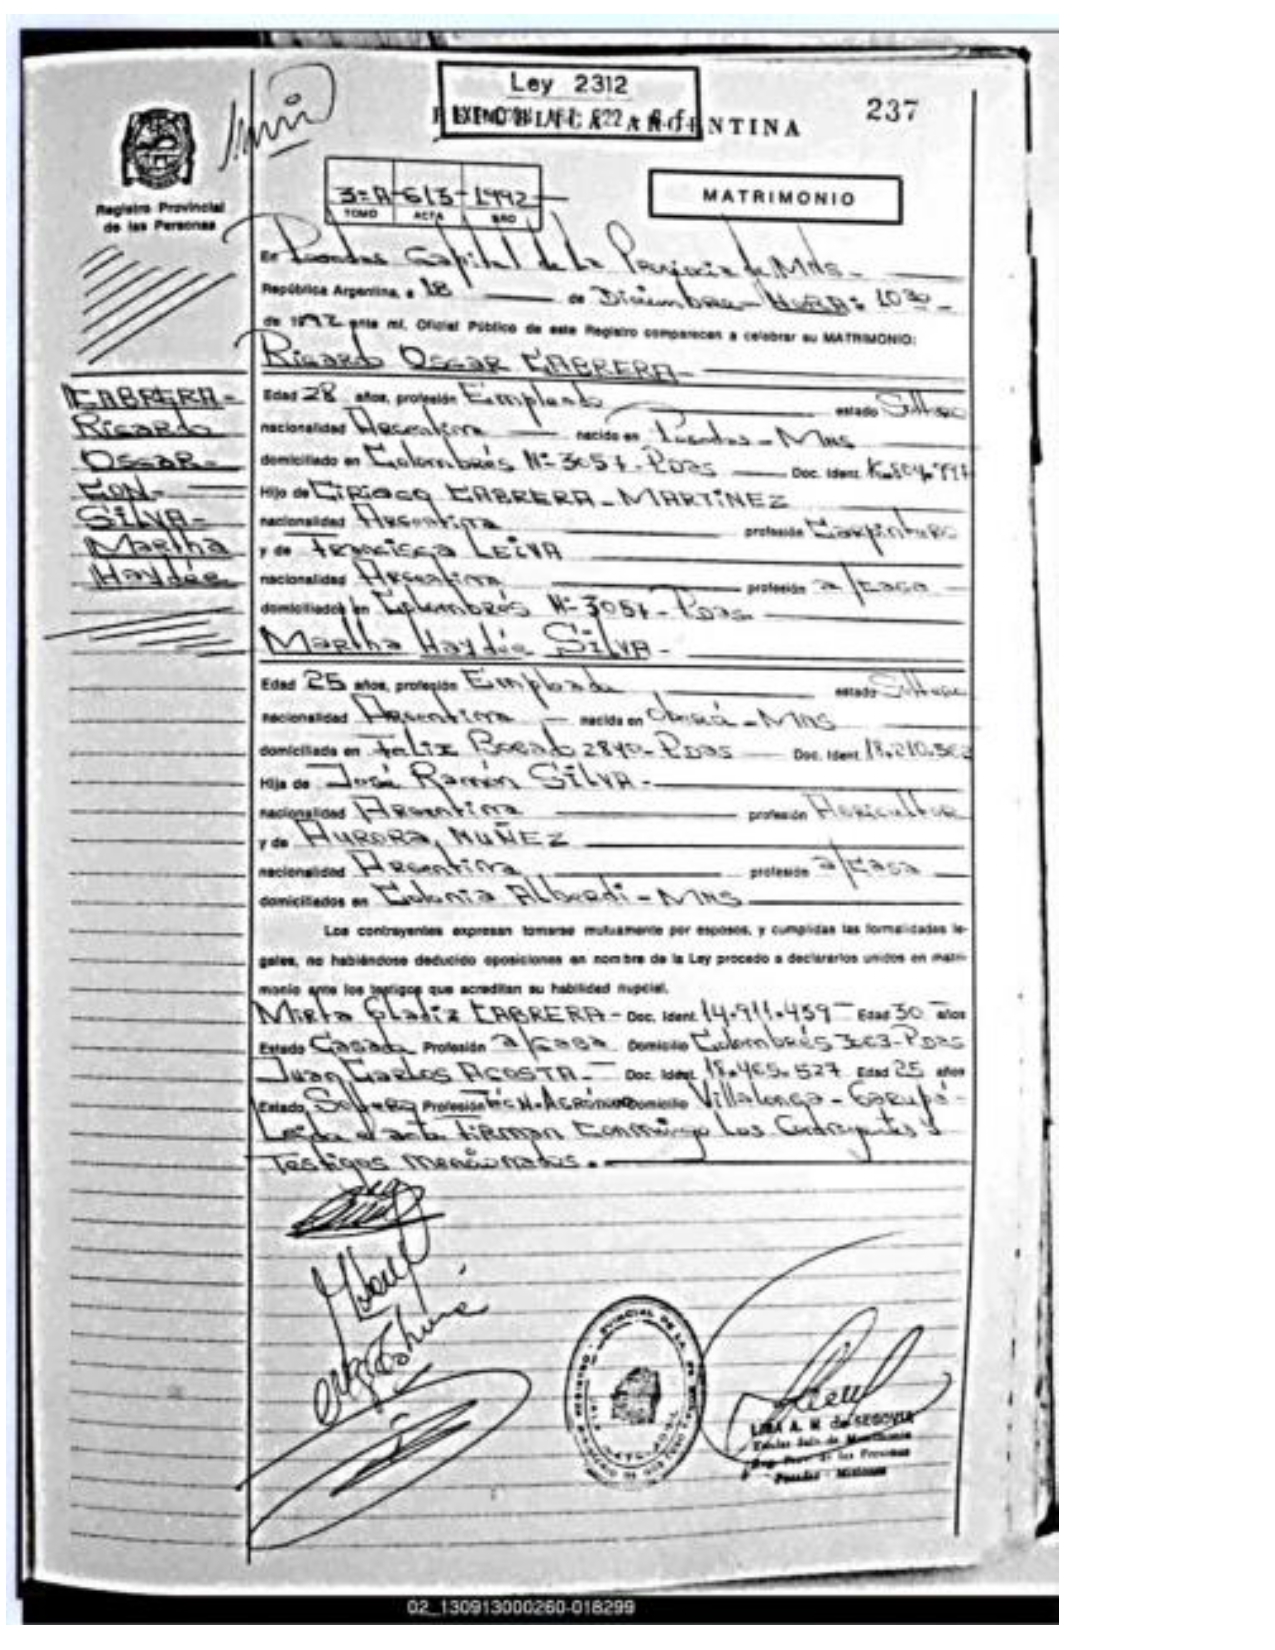 Ley 2312
237
ARGENTINA
3=A-613-1992
TOMO ACTA AÑO
MATRIMONIO
Registro Provincial
de las Personas
En Posadas Capital de La Provincia de Mnes-
República Argentina, a 18 de Diciembre - HORA: 10 30-
de 1992 ante mí, Oficial Público de este Registro comparecen a celebrar su MATRIMONIO:
Ricardo Oscar CABRERA-
CABRERA-
Ricardo
Oscar-
CON-
SILVA-
Martha
Haydée
Edad 28 años, profesión Empleado estado Soltero
nacionalidad Argentina nacido en Posadas - Mns
domiciliado en Colombrés Nº 3057-Pdas Doc. Ident.
Hijo de Ciriaco CABRERA-MARTINEZ
nacionalidad Argentina profesión Carpintero
y de Francisca LEIVA
nacionalidad Argentina profesión a/casa
domiciliados en Colombrés Nº 3057-Pdas
Martha Haydée SILVA-
Edad 25 años, profesión Empleada estado Soltera
nacionalidad Argentina - nacida en Oberá - Mns
domiciliada en Felix Bogado 2840-Pdas Doc. Ident. 18.210.562
Hija de José Ramón SILVA-
nacionalidad Argentina profesión Agricultor
y de AURORA, MUÑEZ
nacionalidad Argentina profesión a/casa
domiciliados en Colonia Alberdi - Mns
Los contrayentes expresan tomarse mutuamente por esposos, y cumplidas las formalidades le-
gales, no habiéndose deducido oposiciones en nombre de la Ley procedo a declararlos unidos en matri-
monio ante los testigos que acreditan su habilidad nupcial.
Mirta Gladiz CABRERA- Doc. Ident. 14.911.459- Edad 30 años
Estado Casada Profesión a/casa Domicilio Colombrés 3063-Pdas
Juan Carlos ACOSTA- Doc. Ident. 18.465.527 Edad 25 años
Estado Soltero Profesión Téc.N.Agrónomo Domicilio Villalonga - Garupá-
Leída el acta Firman Conmigo Los Contrayentes y
Testigos mencionados.-
LIBA A. M. de SEGOVIA
Reg. Prov. de las Personas
Posadas - Misiones
02_130913000260-018299